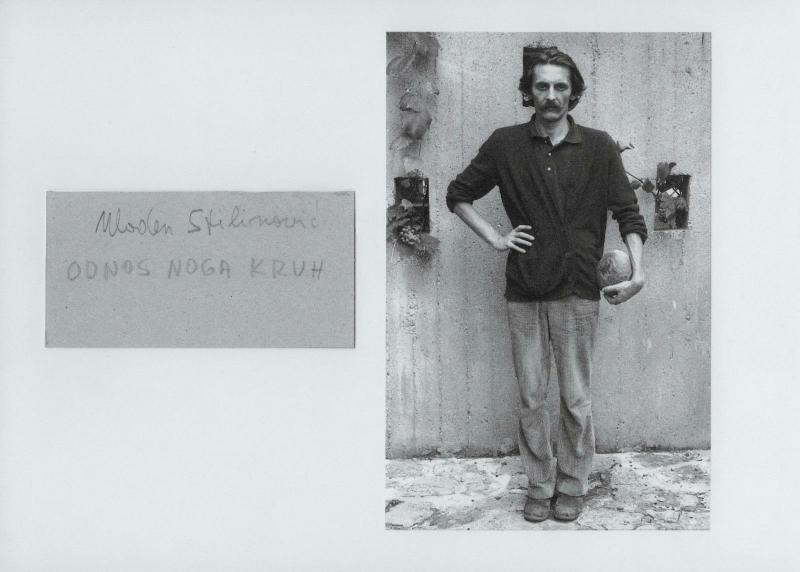 Mladen Stilinović
ODNOS NOGA KRUH